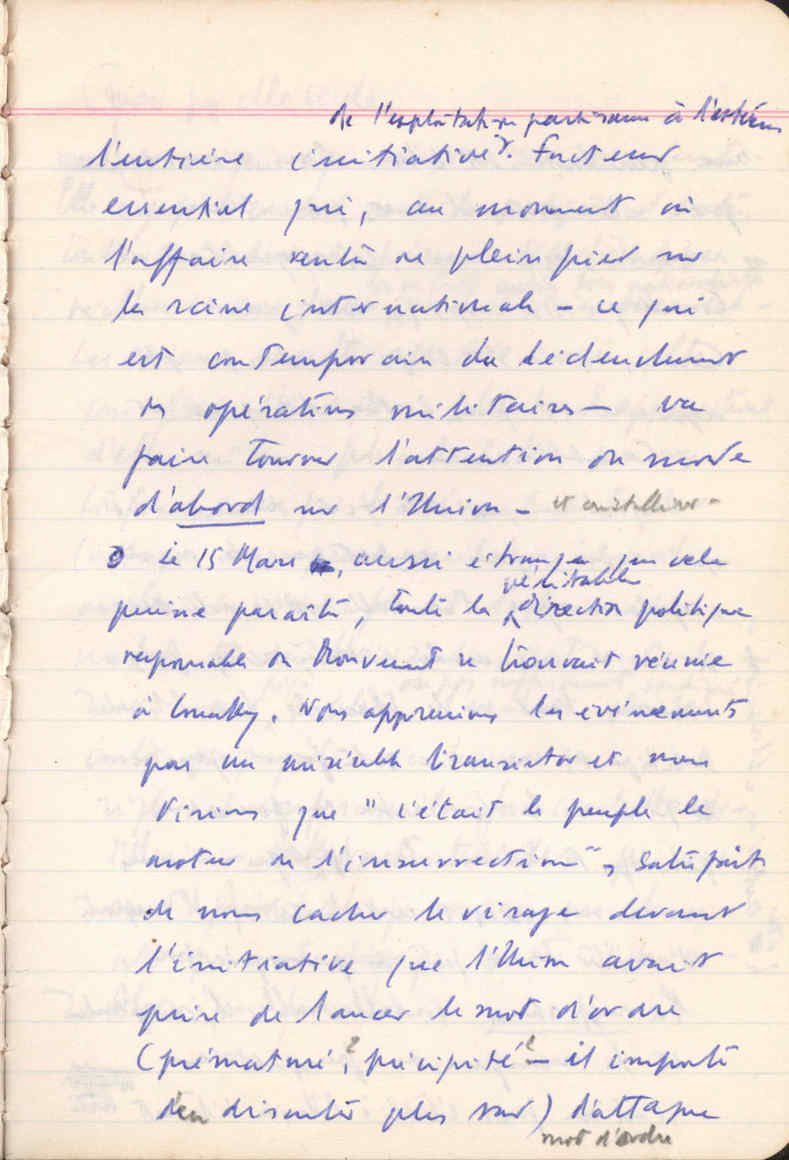 de l'exploitation partisane à l'extérieur
l'entière initiative. Facteur
essentiel qui, au moment où
l'affaire rentre de plein pied sur
la scène internationale – ce qui
est contemporain du déclenchement
des opérations militaires – va
faire tourner l'attention du monde
d'abord sur l'Union – et cristalliser –
Le 15 Mars, aussi étrange que cela
puisse paraître, toute la véritable direction politique
responsable du Mouvement se trouvait réunie
à . Nous apprenions les événements
par un misérable transistor et nous
disions que "c'était le peuple le
moteur de l'insurrection",
de nous cacher le visage devant
l'initiative que l'Union avait
prise de lancer le mot d'ordre
(prématuré?, précipité? – il importe
d'en discuter plus tard) d'attaque
mot d'ordre